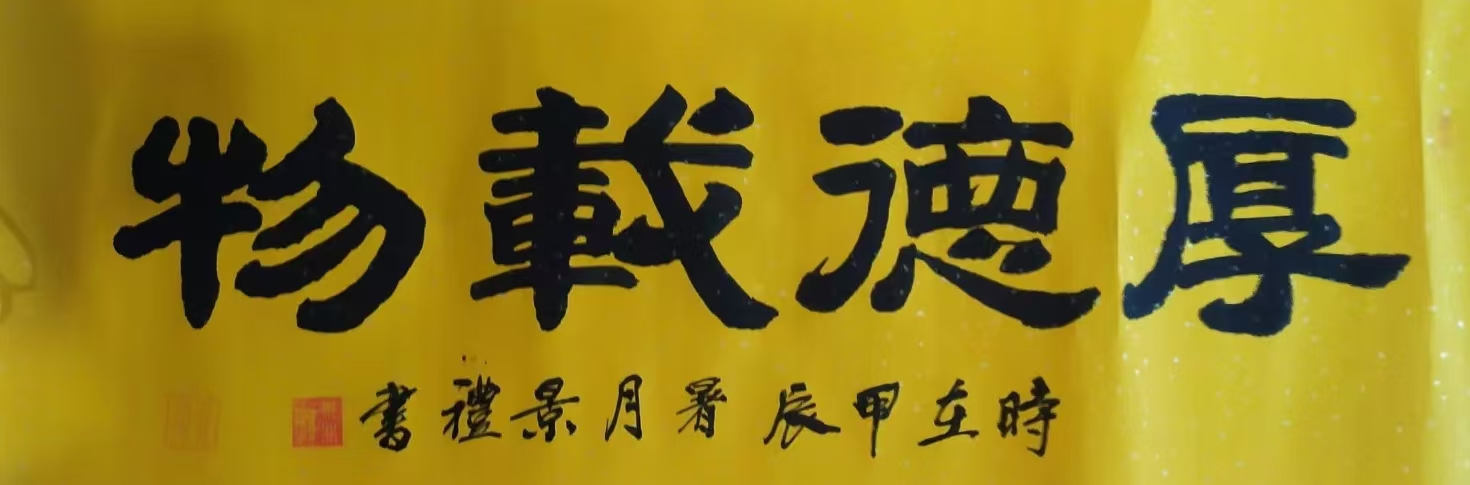 厚德載物
時在甲辰暑月景禮書